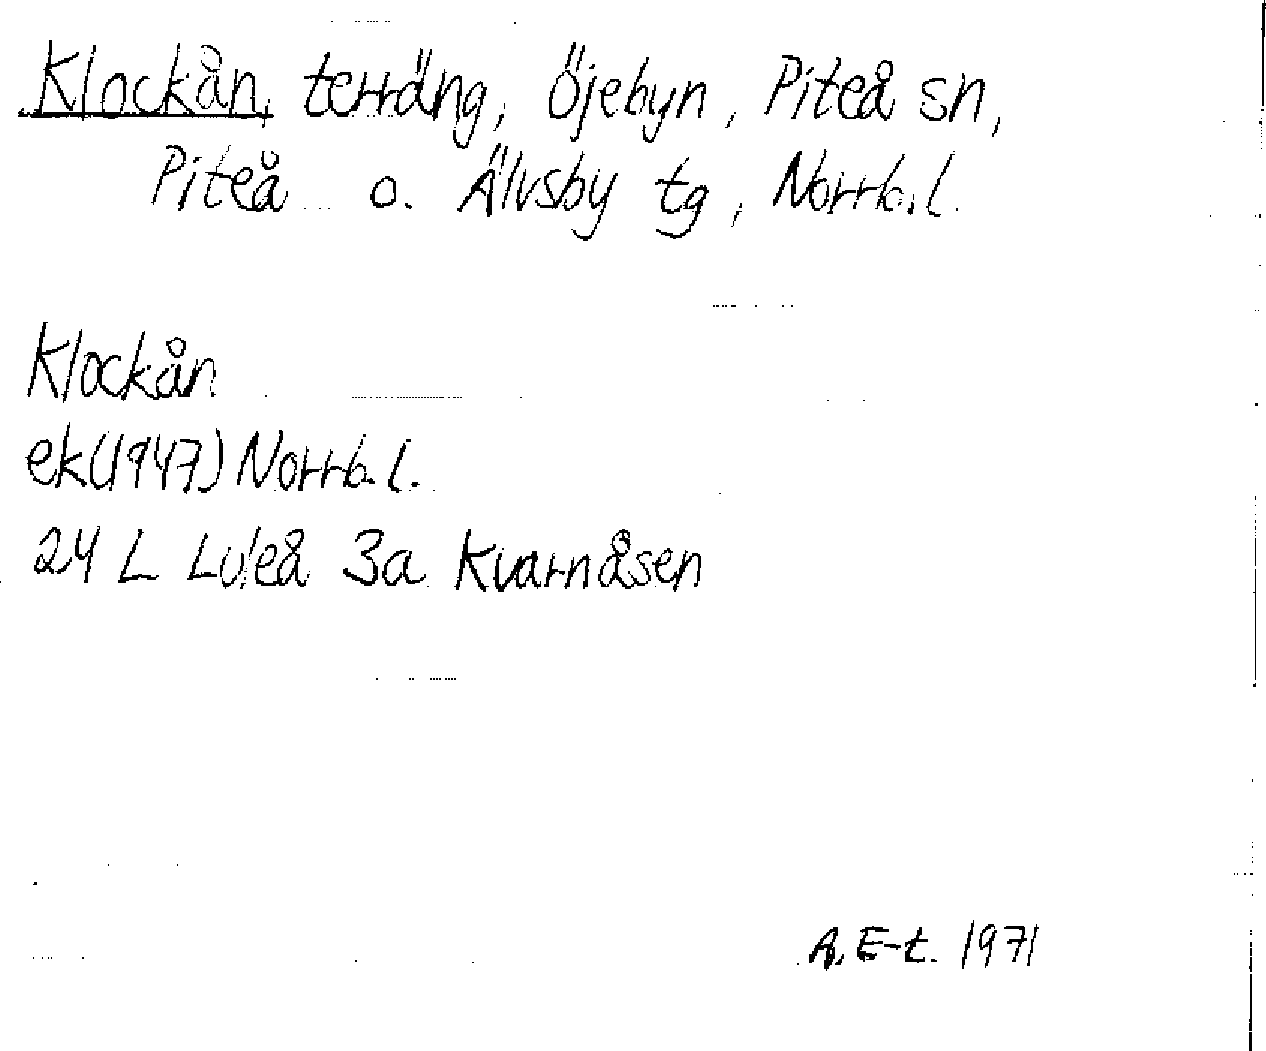 Klockån, terräng, Öjebyn, Piteå sn,
Piteå o. Älvsby tg, Norrb.l.
Klockån
ek(1947) Norrb.l.
24 L Luleå 3a Kvarnåsen
A. E-t. 1971